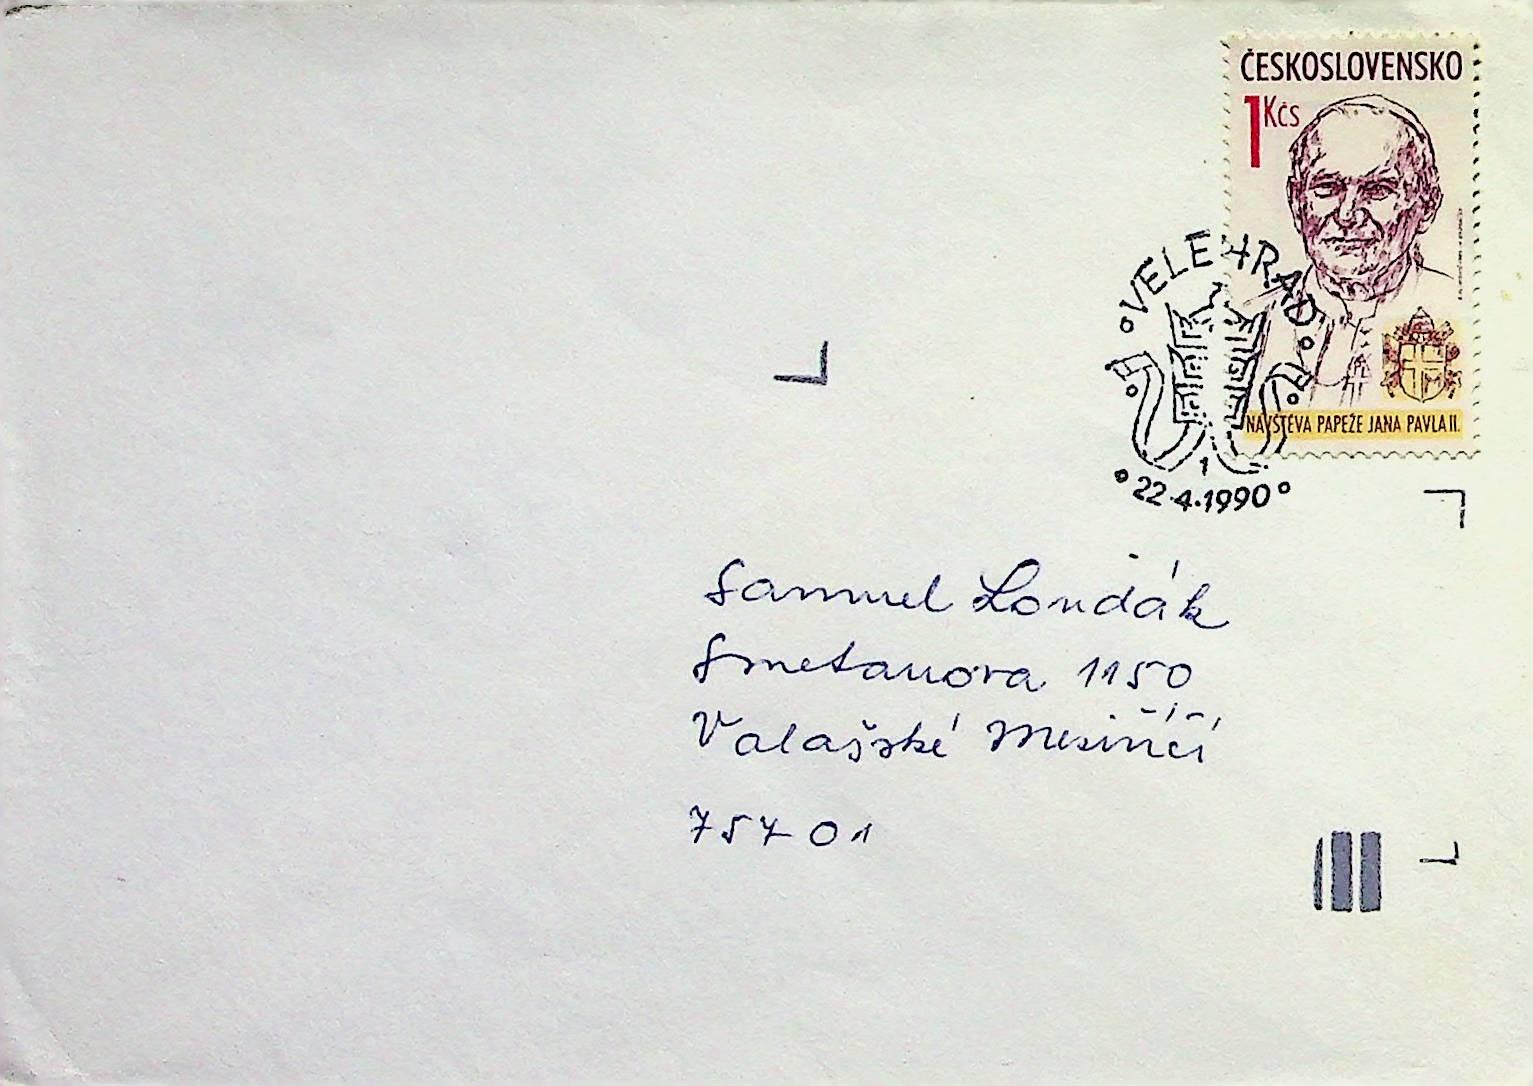 ČESKOSLOVENSKO
1 Kčs
NÁVŠTĚVA PAPEŽE JANA PAVLA II.
VELEHRAD
1
22.4.1990
Samuel Londák
Smetanova 1150
Valašské Mesiříčí
757 01